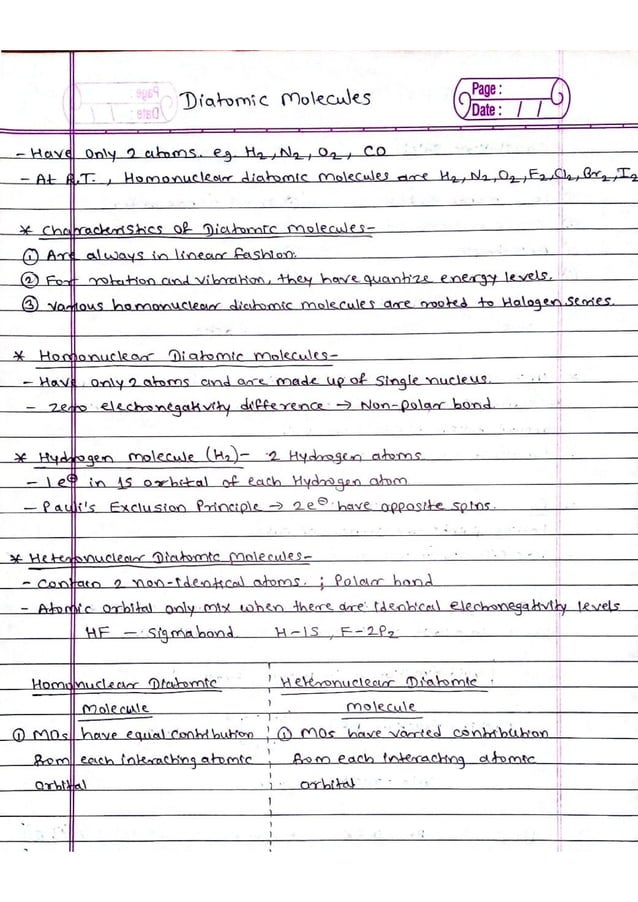 Diatomic Molecules
Page :
Date : / /
- Have only 2 atoms. eg. H2, N2, O2, CO
- At R.T., Homonuclear diatomic molecules are H2, N2, O2, F2, Cl2, Br2, I2
* Characteristics of Diatomic Molecules-
① Are always in linear fashion.
② For rotation and vibration, they have quantize energy levels.
③ Various homonuclear diatomic molecules are rooted to Halogen series.
* Homonuclear Diatomic Molecules-
- Have only 2 atoms and are made up of single nucleus.
- Zero electronegativity difference → Non-polar bond.
* Hydrogen molecule (H2)- 2 Hydrogen atoms.
- 1e⊖ in 1s orbital of each Hydrogen atom
- Pauli's Exclusion Principle → 2e⊖ have opposite spins.
* Heteronuclear Diatomic Molecules-
- Contain 2 non-identical atoms. ; Polar bond
- Atomic orbital only mix when there are identical electronegativity levels
HF - Sigma bond. H-1S, F-2P2
Homonuclear Diatomic Molecule
Heteronuclear Diatomic molecule
① MOs have equal contribution
from each interacting atomic
orbital
① MOs have varied contribution
from each interacting atomic
orbital